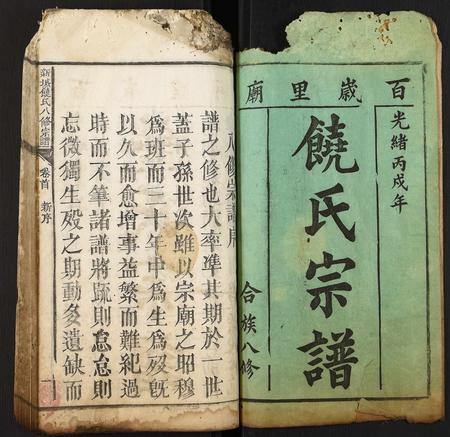 百歲里廟
光緒丙戌年
饒氏宗譜
合族八修
八修宗譜序
譜之修也大率準其期於一世
蓋子孫世次雖以宗廟之昭穆
爲班而三十年中爲生爲歿旣
以久而愈增事益繁而難紀過
時而不筆諸譜將疏則怠怠則
忘微獨生歿之期動多遺缺而
新塲饒氏八修宗譜
卷首
新序
一